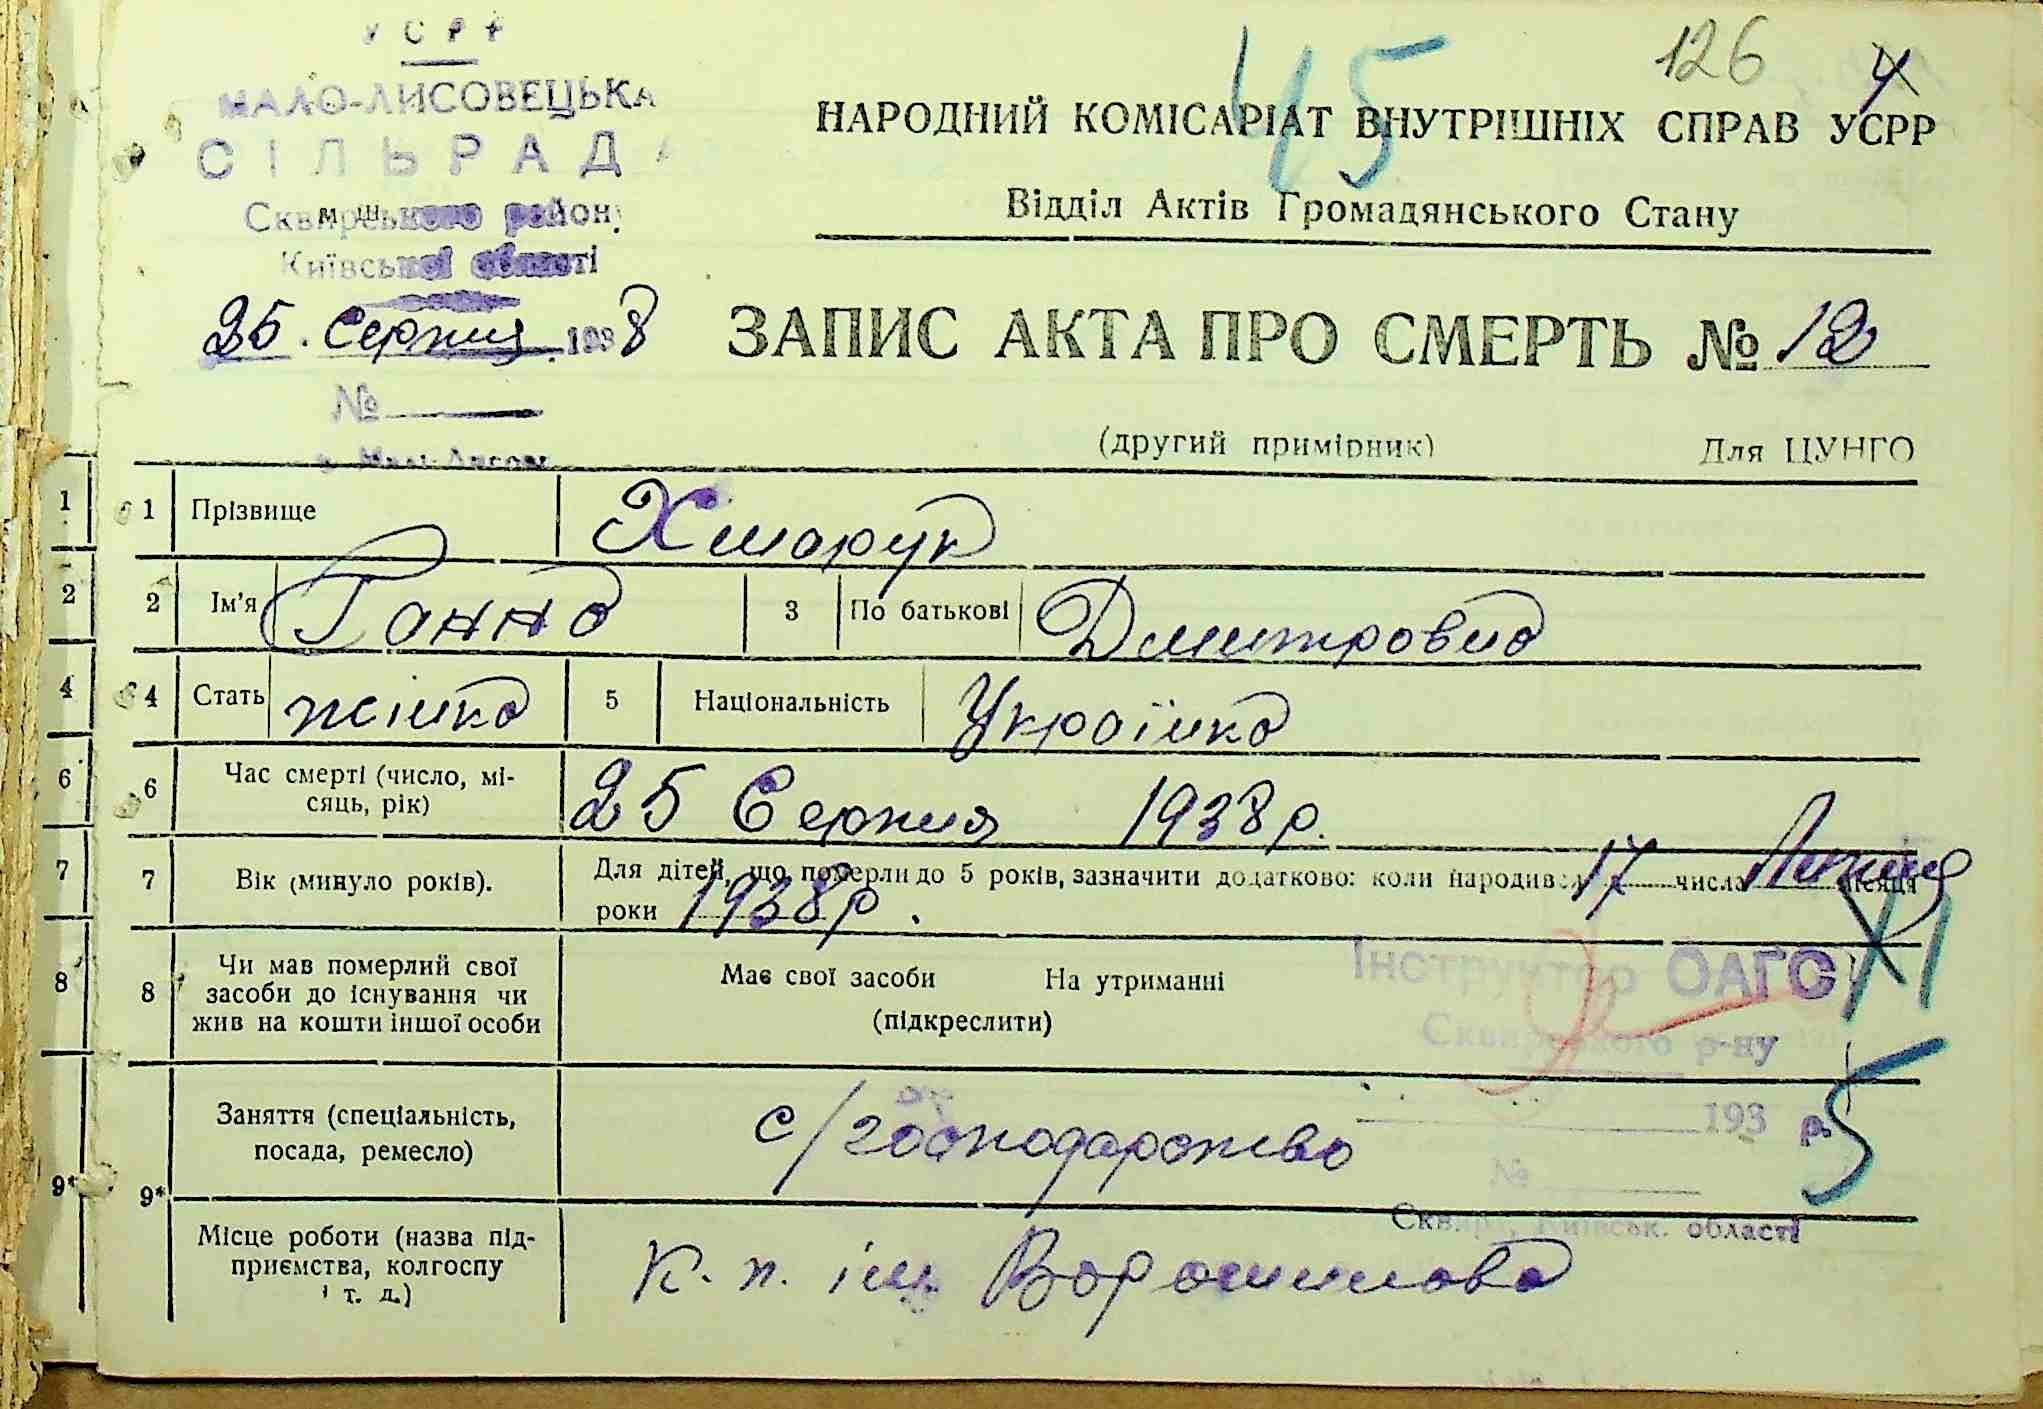 УСРР
МАЛО-ЛИСОВЕЦЬКА
СІЛЬРАДА
Сквирського району
Київської області
25. Серпня 1938
№
45
126
4
НАРОДНИЙ КОМІСАРІАТ ВНУТРІШНІХ СПРАВ УСРР
Відділ Актів Громадянського Стану
ЗАПИС АКТА ПРО СМЕРТЬ № 12
(другий примірник) Для ЦУНГО
1 1 Прізвище Хмарук
2 2 Ім'я Ганна 3 По батькові Дмитровна
4 4 Стать жінка 5 Національність Українка
6 6 Час смерті (число, мі-
сяць, рік) 25 Серпня 1938 р.
7 7 Вік (минуло років). Для дітей, що померли до 5 років, зазначити додатково: коли народився 17 числа Липня місяця
роки 1938 р.
8 8 Чи мав померлий свої
засоби до існування чи
жив на кошти іншої особи
Має свої засоби На утриманні
(підкреслити)
Інструктор ОАГС
Сквирського р-ну
193 р.
№
Сквира, Київськ. області
5
9* 9* Заняття (спеціальність,
посада, ремесло) с/господарство
Місце роботи (назва під-
приємства, колгоспу
і т. д.) К. п. ім Ворошилова